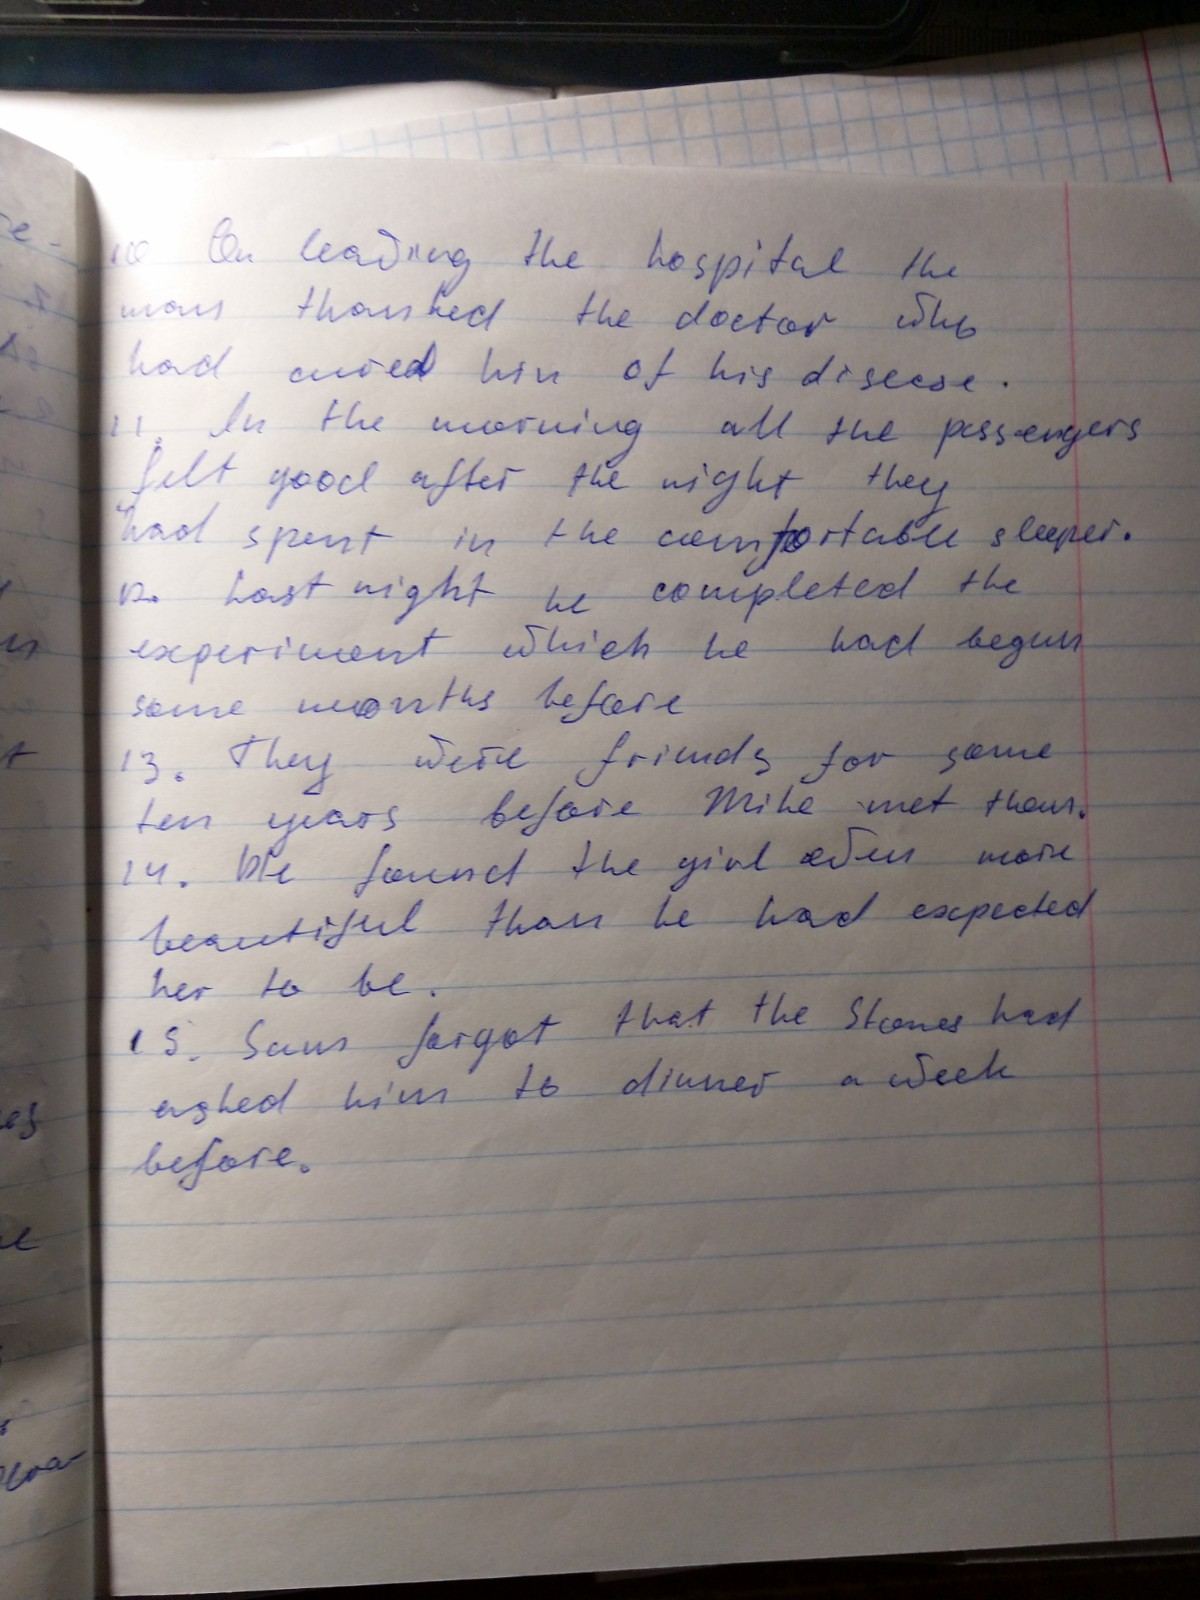 10 On leaving the hospital the
man thanked the doctor who
had cured him of his disease.
11. In the morning all the passengers
felt good after the night they
had spent in the comfortable sleeper.
12. Last night he completed the
experiment which he had begun
some months before
13. They were friends for some
ten years before Mike met them.
14. He found the girl even more
beautiful than he had expected
her to be.
15. Sam forgot that the Stones had
asked him to dinner a week
before.